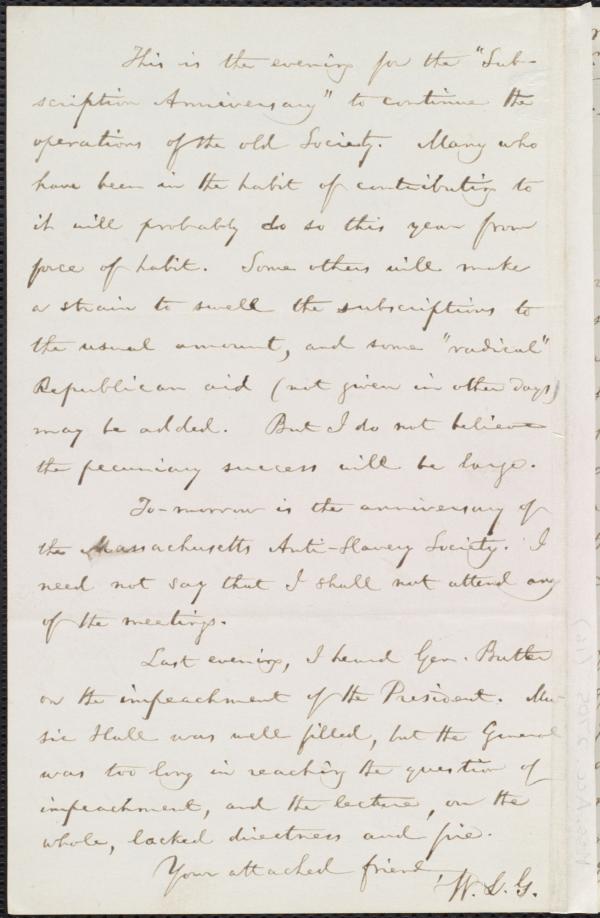 This is the evening for the "Sub-
scription Anniversary" to continue the
operations of the old Society. Many who
have been in the habit of contributing to
it will probably do so this year from
force of habit. Some others will make
a strain to swell the subscriptions to
the usual amount, and some "radical"
Republican aid (not given in other days)
may be added. But I do not believe
the pecuniary success will be large.
To-morrow is the anniversary of
the Massachusetts Anti-Slavery Society. I
need not say that I shall not attend any
of the meetings.
Last evening, I heard Gen. Butler
on the impeachment of the President. Mu-
sic Hall was well filled, but the General
was too long in reaching the question of
impeachment, and the lecture, on the
whole, lacked directness and fire.
Your attached friend,
W. L. G.